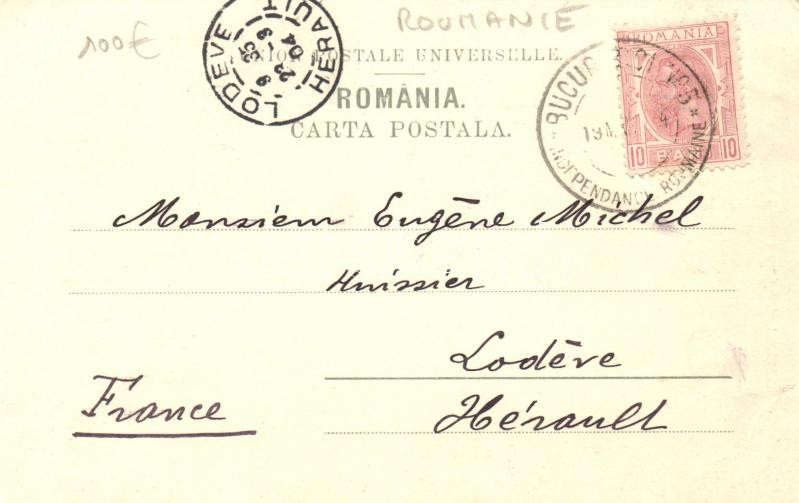 100€
ROUMANIE
LODEVE
HERAULT
UNION POSTALE UNIVERSELLE.
ROMÂNIA.
CARTA POSTALA.
ROMANIA
10 10
INDEPENDANCE ROUMAINE
Monsieur Eugène Michel
Huissier
Lodève
France
Hérault